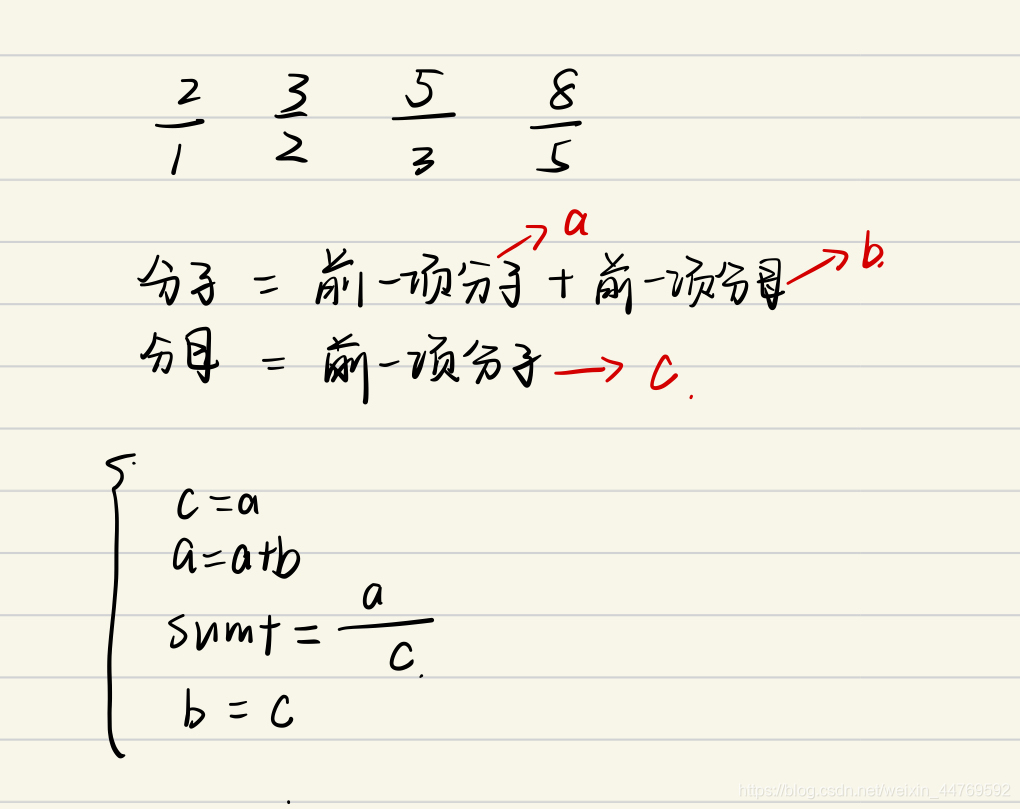 2/1 3/2 5/3 8/5
a
分子 = 前一项分子 + 前一项分母 b.
分母 = 前一项分子 → c.
c=a
a=a+b
sum+= a/c.
b = c
https://blog.csdn.net/weixin_44769592